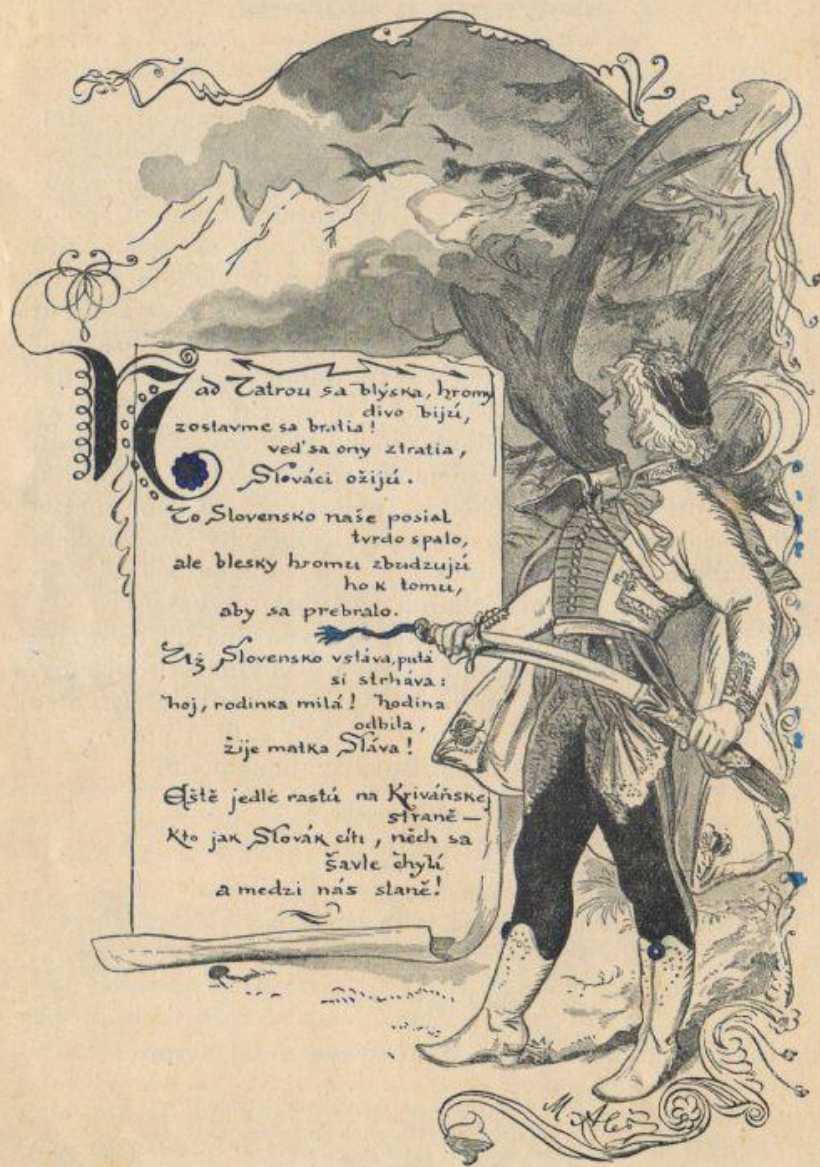 Nad Tatrou sa blýska, hromy
divo bijú,
zostavme sa bratia!
veď sa ony ztratia,
Slováci ožijú.
To Slovensko naše posial
tvrdo spalo,
ale blesky hromu zbudzujú
ho k tomu,
aby sa prebralo.
Už Slovensko vstáva, putá
si strháva:
hoj, rodinka milá! hodina
odbila,
žije matka Sláva!
Eště jedle rastú na Kriváňskej
straně —
Kto jak Slovák cíti, něch sa
šavle chytí
a medzi nás staně!
M. Aleš